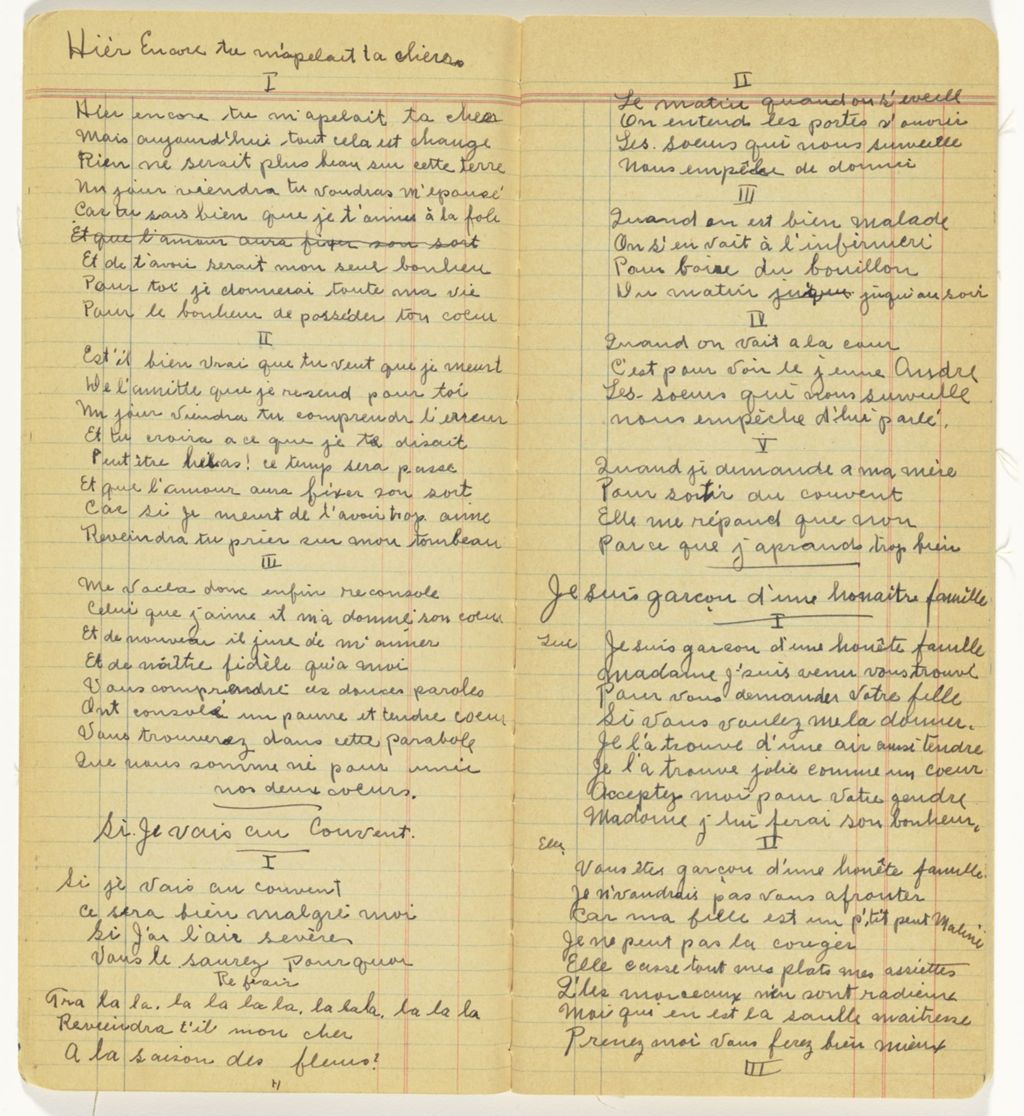 Hièr Encore tu m'apelait ta chière.
I
Hier encore tu m'apelait ta chère
Mais aujourd'hui tout cela est change
Rien ne serait plus beau sur cette terre
Un jour viendra tu voudras m'épousé
Car tu sais bien que je t'aimes à la foli
Et que l'amour aura fixer son sort
Et de t'avoir serait mon seul bonheu
Pour toi je donnerai toute ma vie
Pour le bonheur de posséder ton coeur
II
Est'il bien vrai que tu veut que je meurt
De l'amitte que je resend pour toi
Un jour viendra tu comprendr l'erreur
Et tu croira a ce que je te disait
Peut être helas! ce temp sera passe
Et que l'amour aura fixer son sort
Car si je meurt de t'avoir trop aime
Reveindra tu prier sur mon tombeau
III
Me voila donc enfin reconsole
Celui que j'aime il m'a donné son coeur
Et de nouveau il jure de m'aimer
Et de n'aître fidèle qu'a moi
Vous comprendre ces douces paroles
Ont consolé un pauvre et tendre coeur
Vous trouverez dans cette parabole
Que nous somme né pour unir
nos deux coeurs.
Si. Je vais au Couvent.
I
Si je vais au couvent
ce sera bien malgré moi
Si J'ai l'air sevères
Vous le saurez pourquoi
Refrair
Tra la la, la la la la, la la la, la la la
Reveindra t'il mon cher
A la saison des fleurs?
II
Le matin quand on s'eveill
On entend les portes s'ouvrir
Les. soeurs qui nous surveille
Nous empêche de dormir
III
Quand on est bien malade
On s'en vait à l'infirmeri
Pour boire du bouillon
Du matin jusqu'au soir
IV
Quand on vait a la cour
C'est pour voir le jeune André
Les. soeurs qui nous surveille
nous empêche d'lui parlé.
V
Quand je demande a ma mère
Pour sortir du couvent
Elle me répand que non
Parce que j'aprands trop bien
Je suis garçon d'une honaitre famille
I
Lui Je suis garçon d'une honête famille
Madame j'suis venu vous trouvé
Pour vous demander votre fille
Si vous voulez me la donner.
Je l'a trouve d'une air ausi tendre
Je l'a trouve jolie comme un coeur
Acceptez moi pour votre gendre
Madame j'lui ferai son bonheur.
II
Elle, Vous êtes garçon d'une honête famille.
Je n'voudrais pas vous afronter
Car ma fille est un p'tit peut Maline
Je ne peut pas la coriger
Elle casse tout mes plats mes assiettes
L'les morceaux n'en sont radieux
Moi qui en est la saulle maitresse
Prenez moi vous ferez bien mieux
III